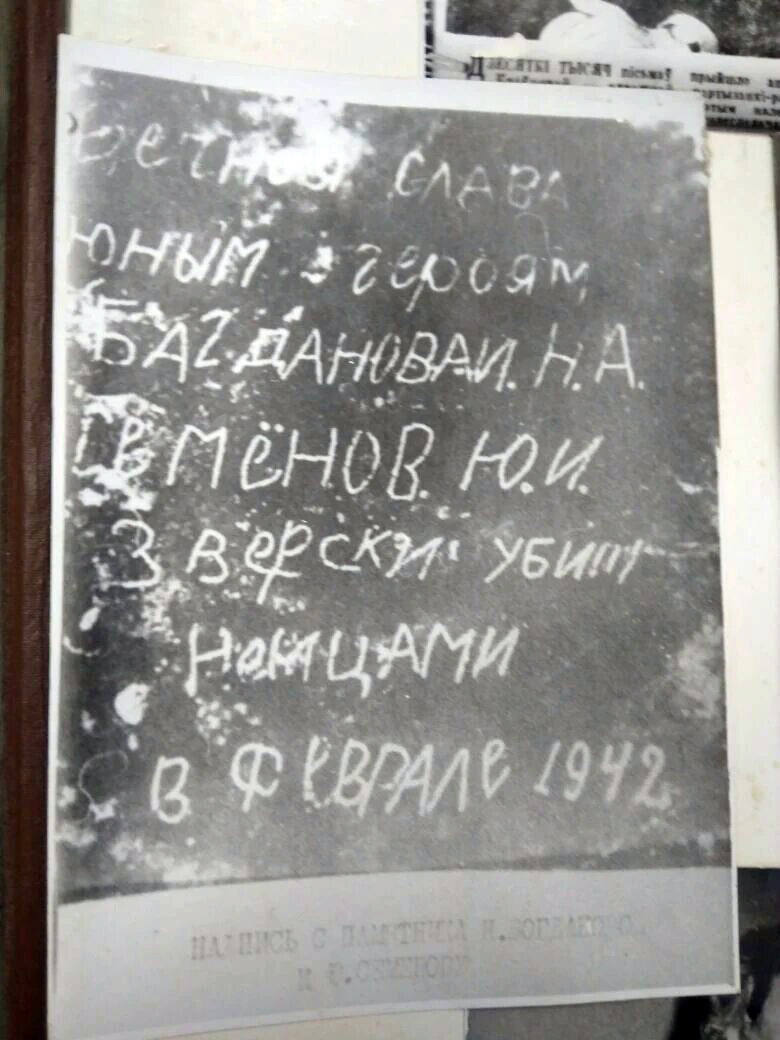 ДЗЕСЯТКІ ТЫСЯЧ пісьмаў прыйшло
Вечная СЛАВА
юным героям
БАГДАНОВАЙ. Н. А.
СЕМЁНОВ. Ю. И.
Зверски убиты
немцАМИ
в ФЕВРАЛе 1942
НАДПИСЬ С ПАМЯТНИКА Н.БОГДАНОВОЙ
И Ю.СЕМЕНОВУ